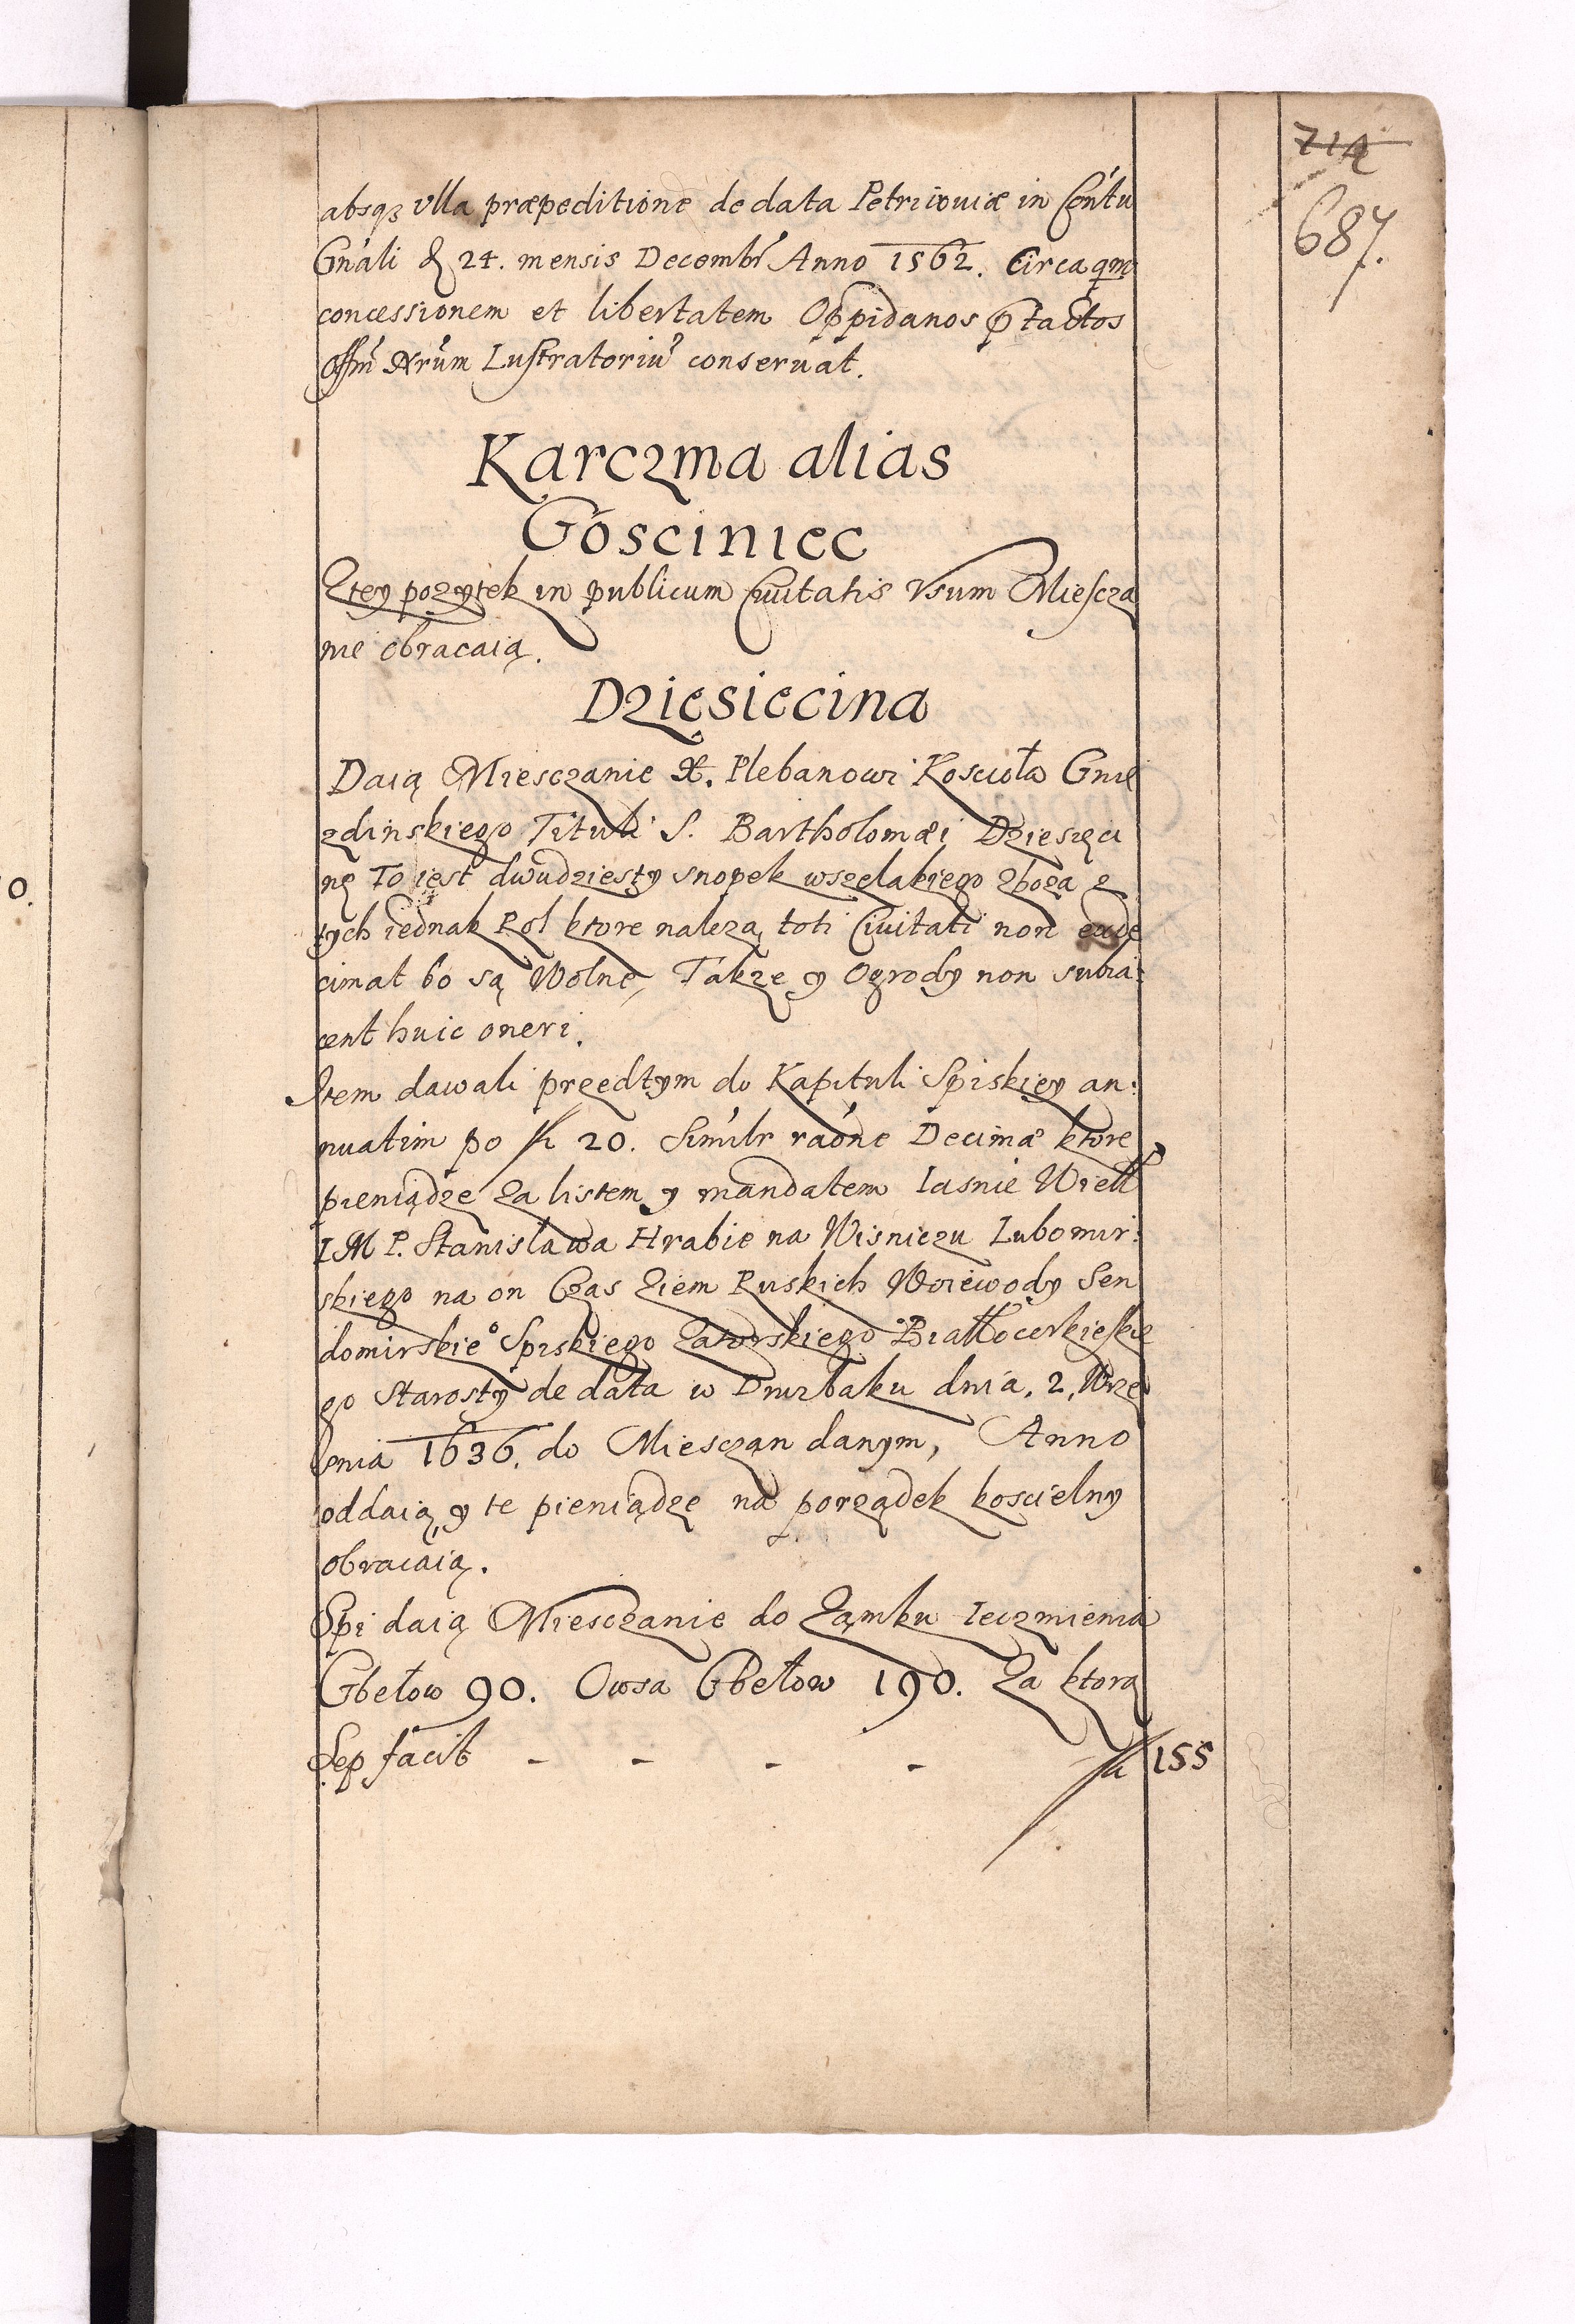 714
687.
absqȝ vlla præpeditione de data Petricouiæ in Cõntu
Gn̄ali & 24. mensis Decembr Anno 1562. Circa qm
concessionem et libertatem Oppidanos ptactos
Offm̄ Nrūm Lustratoriu conseruat.
Karczma alias
Gosciniec
Ztey pozytek in publicum Ciuitatis Vsum Miescza
nie obracaią.
Dzięsiecina
Daią Miesczanie X. Plebanowi Kosciola Gnie
zdinskiego Tituli S. Bartholomæi Dziesięci
nę To iest dwudziesty snopek wszelakiego zboza z
tych iednak Rol ktore nalezą toti Ciuitati non
cimat bo są Wolne, Takze y Ogrody non subia:
cent huic oneri.
Item dawali przedtym do Kapituli Spiskiey an:
nuatim po fl 20. Simılr raōne Decimæ ktore
pieniądze za listem y mandatem Iasnie Wiel
IM P. Stanisława Hrabie na Wisniczu Lubomir:
skiego na on Czas Ziem Ruskich Woiewody Sen
domirskie° Spiskiego Zatorskiego Białłocerkieskie
go Starosty de data w Druzbaku dnia. 2. Wrze
snia 1636. do Miesczan danym, Anno
oddaią, y te pieniądze na porządek koscielny
obracaią.
Spi daią Miesczanie do Zamku Ieczmienia
Gbełow 90. Owsa Gbełow 190. Za ktorą
Sep facit - - - - fl 155
0.